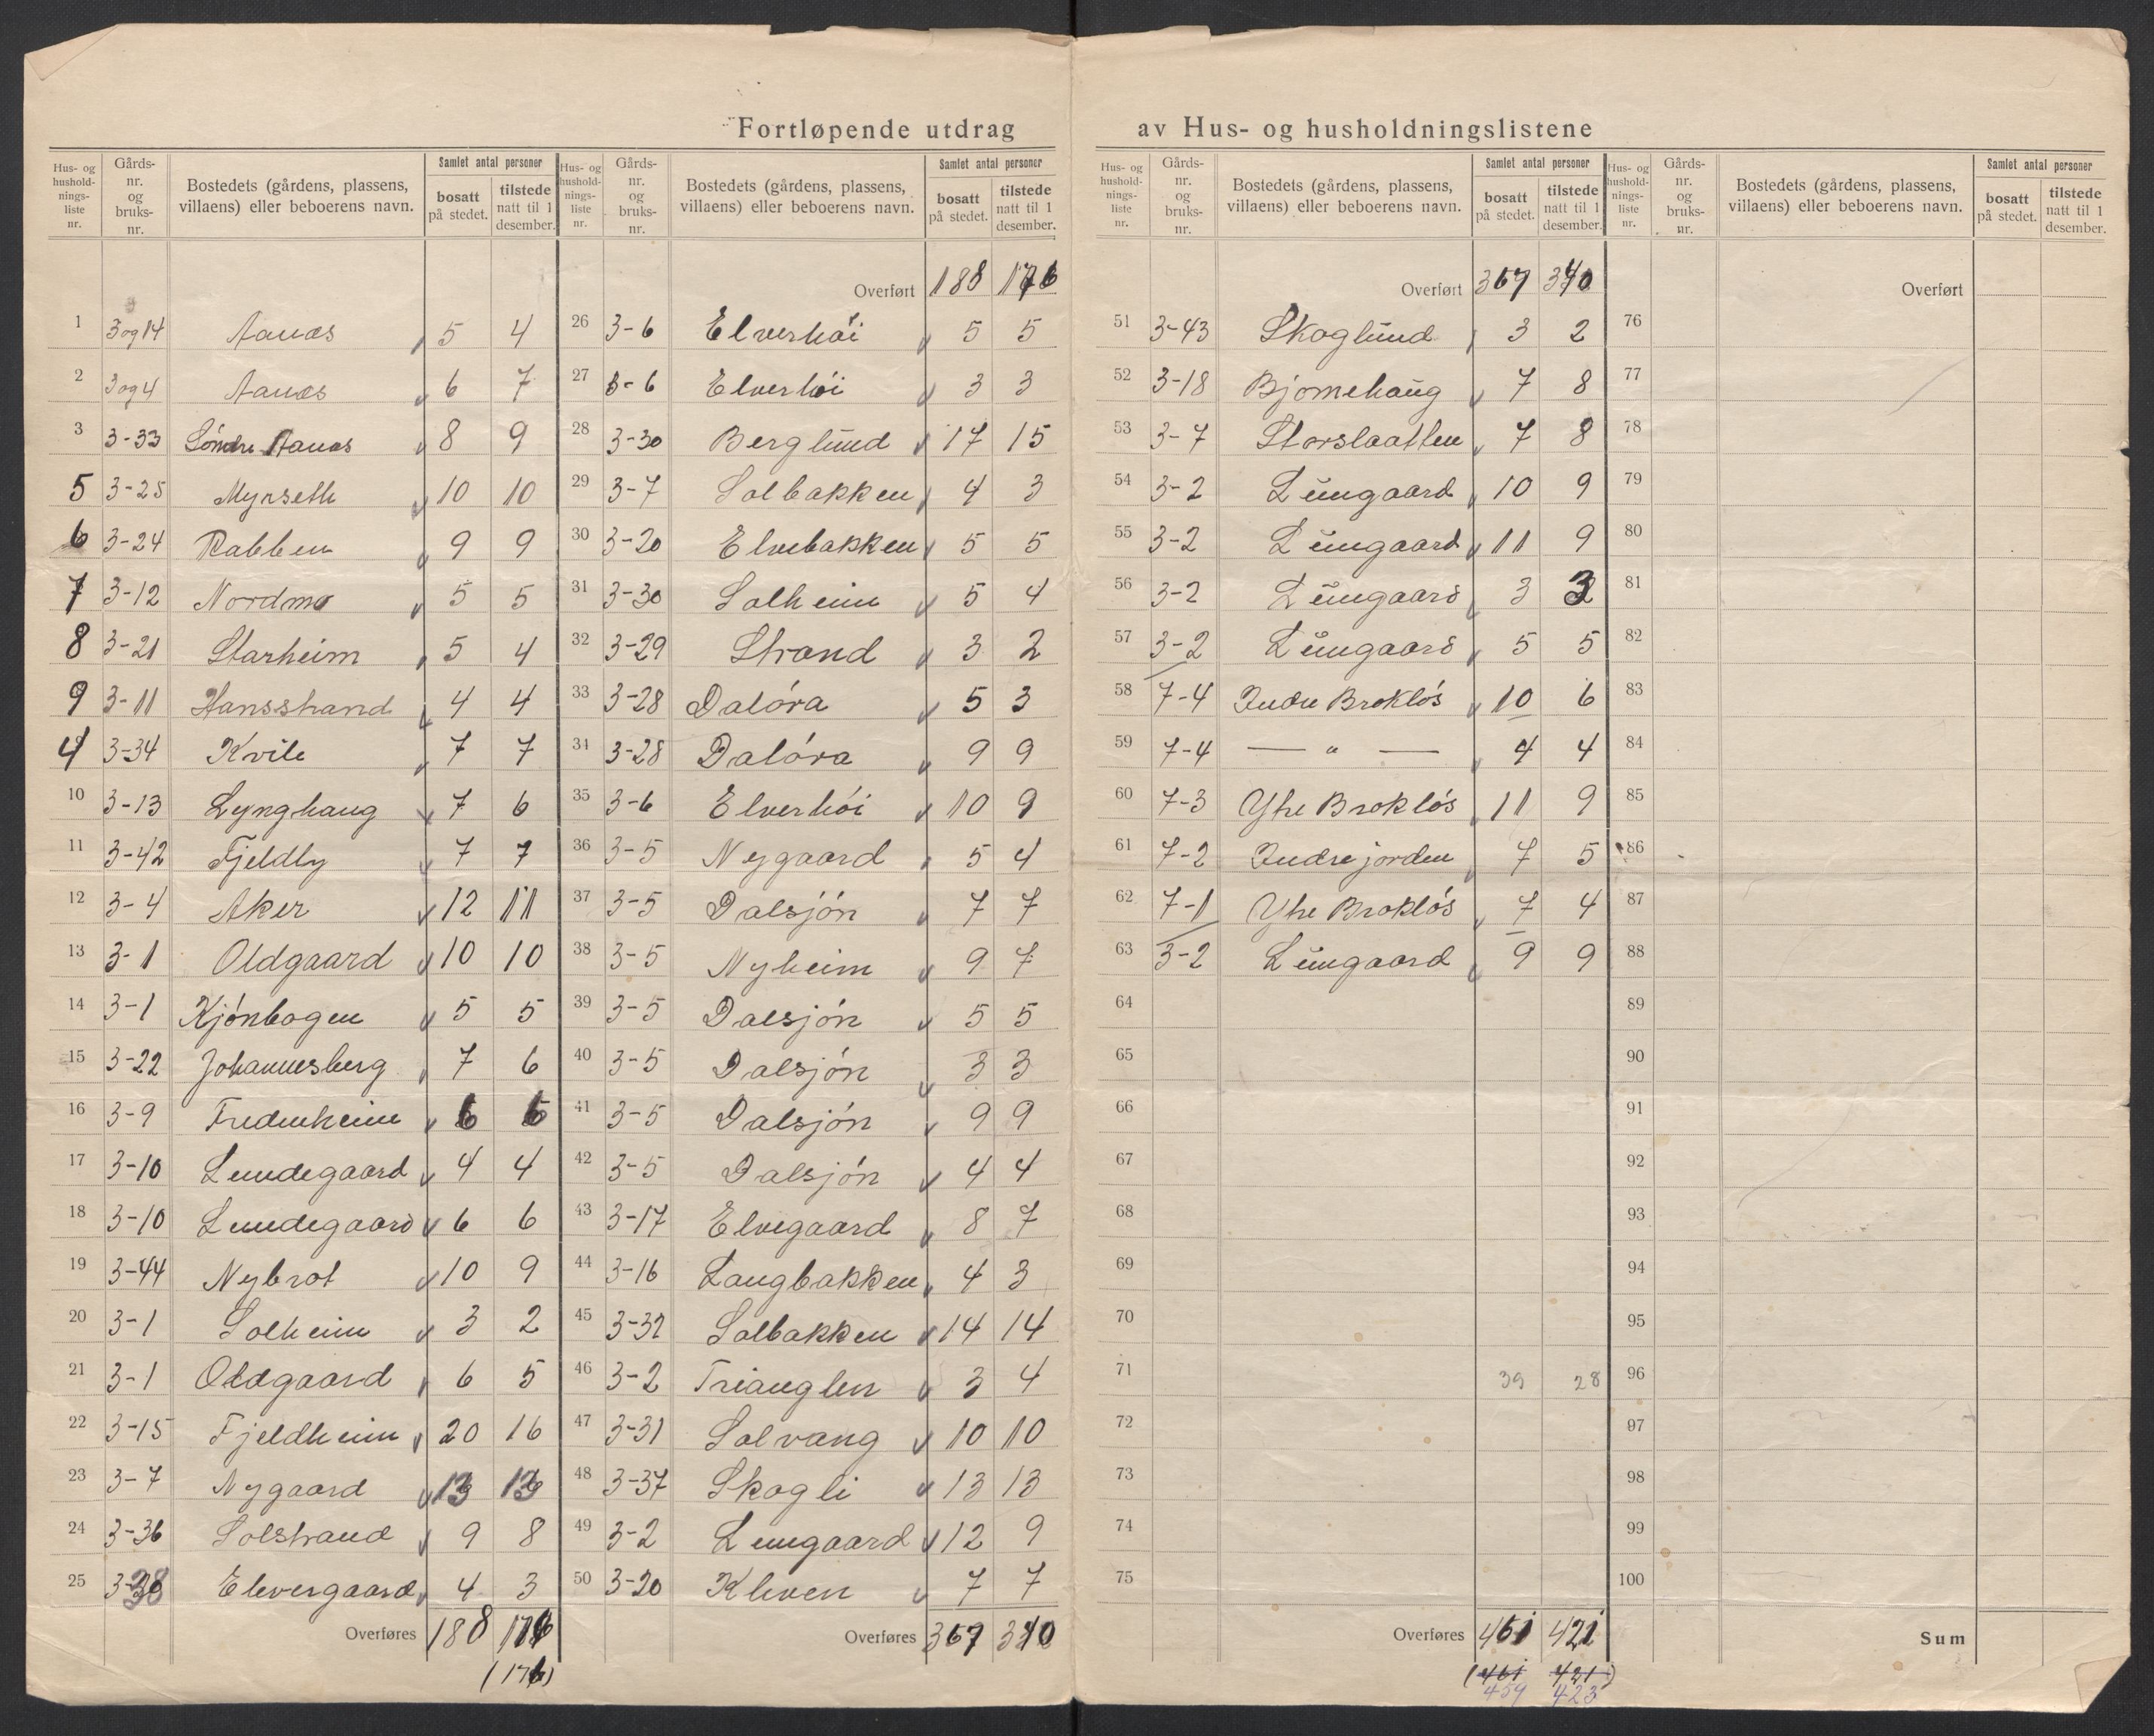 Fortløpende utdrag av Hus- og husholdningslistene
Hus- og husholdnings-liste nr. Gårds-nr. og bruks-nr. Bostedets (gårdens, plassens, villaens) eller beboerens navn. Samlet antal personer bosatt på stedet. tilstede natt til 1 desember.
1 3og14 Aanæs 5 4
2 3og4 Aanæs 6 7
3 3-33 Söndre Aanæs 8 9
5 3-25 Myrseth 10 10
6 3-24 Rabben 9 9
7 3-12 Nordmo 5 5
8 3-21 Starheim 5 4
9 3-11 Hansstrand 4 4
4 3-34 Kvile 7 7
10 3-13 Lynghaug 7 6
11 3-42 Fjeldly 7 7
12 3-4 Aker 12 11
13 3-1 Oldgaard 10 10
14 3-1 Kjónbogen 5 5
15 3-22 Johannesberg 7 6
16 3-9 Fredenheim 6 6
17 3-10 Lundegaard 4 4
18 3-10 Lundegaard 6 6
19 3-44 Nybrot 10 9
20 3-1 Solheim 3 2
21 3-1 Oldgaard 6 5
22 3-15 Fjeldheim 20 16
23 3-7 Nygaard 13 13
24 3-36 Solstrand 9 8
25 3-38 Elvergaard 4 3
Overføres 188 176
(176)
Hus- og husholdnings-liste nr. Gårds-nr. og bruks-nr. Bostedets (gårdens, plassens, villaens) eller beboerens navn. Samlet antal personer bosatt på stedet. tilstede natt til 1 desember.
Overført 188 176
26 3-6 Elverhöi 5 5
27 3-6 Elverhöi 3 3
28 3-30 Berglund 17 15
29 3-7 Solbakken 4 3
30 3-20 Elvebakken 5 5
31 3-30 Solheim 5 4
32 3-29 Strand 3 2
33 3-28 Dalóra 5 3
34 3-28 Dalóra 9 9
35 3-6 Elverhói 10 9
36 3-5 Nygaard 5 4
37 3-5 Dalsjón 7 7
38 3-5 Nyheim 9 7
39 3-5 Dalsjón 5 5
40 3-5 Dalsjón 3 3
41 3-5 Dalsjón 9 9
42 3-5 Dalsjón 4 4
43 3-17 Elvegaard 8 7
44 3-16 Langbakken 4 3
45 3-32 Solbakken 14 14
46 3-2 Trianglen 3 4
47 3-31 Solvang 10 10
48 3-37 Skogli 13 13
49 3-2 Lungaard 12 9
50 3-20 Kleven 7 7
Overføres 367 340
Hus- og husholdnings-liste nr. Gårds-nr. og bruks-nr. Bostedets (gårdens, plassens, villaens) eller beboerens navn. Samlet antal personer bosatt på stedet. tilstede natt til 1 desember.
Overført 367 340
51 3-43 Skoglund 3 2
52 3-18 Bjørnehaug 7 8
53 3-7 Storslaatten 7 8
54 3-2 Lungaard 10 9
55 3-2 Lungaard 11 9
56 3-2 Lungaard 3 3
57 3-2 Lungaard 5 5
58 7-4 Indre Broklós 10 6
59 7-4 — " — 4 4
60 7-3 Ytre Broklós 11 9
61 7-2 Indrejorden 7 5
62 7-1 Ytre Broklós 7 4
63 3-2 Lungaard 9 9
64
65
66
67
68
69
70
71 39 28
72
73
74
75
Overføres 461 421
(461 421)
459 423
Hus- og husholdnings-liste nr. Gårds-nr. og bruks-nr. Bostedets (gårdens, plassens, villaens) eller beboerens navn. Samlet antal personer bosatt på stedet. tilstede natt til 1 desember.
Overført
76
77
78
79
80
81
82
83
84
85
86
87
88
89
90
91
92
93
94
95
96
97
98
99
100
Sum